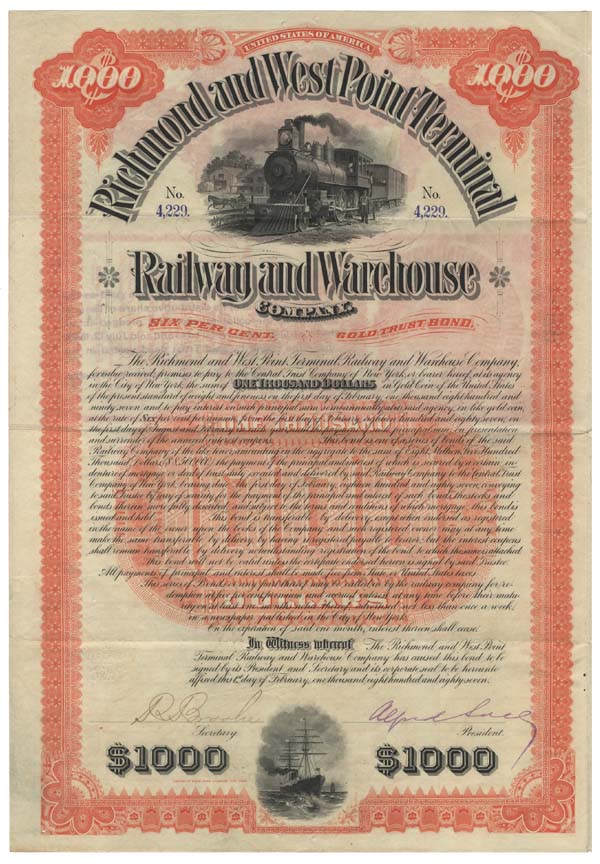 UNITED STATES OF AMERICA
$1,000 $1,000
Richmond and West Point Terminal
No. 4,229. No. 4,229.
Railway and Warehouse
COMPANY.
SIX PER CENT. GOLD TRUST BOND.
The Richmond and West Point Terminal Railway and Warehouse Company,
for value received, promises to pay to the Central Trust Company of New York, or bearer hereof, at its agency
in the City of New York, the sum of ONE THOUSAND DOLLARS in Gold Coin of the United States
of the present standard of weight and fineness on the first day of February, one thousand eight hundred and
ninety seven and to pay interest on such principal sum semi-annually at its said agency, in like gold coin,
at the rate of six per cent per annum from the first day of February, one thousand eight hundred and eighty seven, on
the first day of August and on presentation
and surrender of the annexed interest coupons. This bond is one of a series of bonds of the said
Railway Company of the like tenor, amounting in the aggregate to the sum of Eight Million, five Hundred
Thousand Dollars, ($8,500,000.) the payment of the principal and interest of which is secured by a certain in-
denture of mortgage or deed of trust, duly executed and delivered by said Railway Company to the Central Trust
Company of New York, bearing date the first day of February, eighteen hundred and eighty seven, conveying
to said Trustee by way of security for the payment of the principal and interest of such bonds, the stocks and
bonds therein more fully described, and subject to the terms and conditions of which mortgage, this bond is
issued and held. This bond is transferable by delivery, except when ordered as registered
in the name of the owner upon the books of the Company and such registered owner may at any time
make the same transferable by delivery, by having it registered payable to bearer, but the interest coupons
shall remain transferable by delivery notwithstanding registration of the bond to which the same is attached.
This bond shall not be valid unless the certificate endorsed hereon is signed by said Trustee.
All payments of principal and interest shall be made free from State or United States taxes.
This series of Bonds or any part thereof may be called in by the railway company for re-
demption at five per cent premium and accrued interest, at any time before their matu-
rity on at least one month's notice thereof advertised not less than once a week,
in a newspaper published in the City of New York.
On the expiration of said one month, interest thereon shall cease.
In Witness whereof, The Richmond and West Point
Terminal Railway and Warehouse Company has caused this bond to be
signed by its President and Secretary and its corporate seal to be hereunto
affixed this 1st day of February, one thousand eight hundred and eighty-seven.
Secretary. President.
$1000 $1000